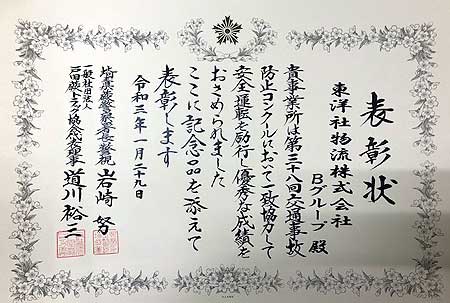 表彰状
東洋社物流株式会社
Bグループ 殿
貴事業所は第三十八回交通事故
防止コンクールにおいて一致協力して
安全運転を励行し優秀な成績を
おさめられました
ここに記念品を添えて
表彰します
令和三年一月二十九日
埼玉県蕨警察署長警視 岩崎 努
一般社団法人
戸田蕨トラック協会代表理事 道川裕三